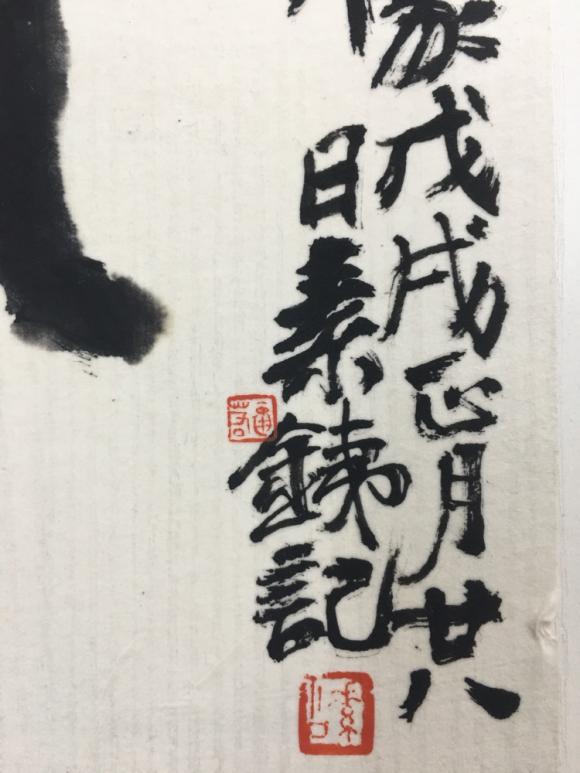 戊戌正月廿八
日素銕記